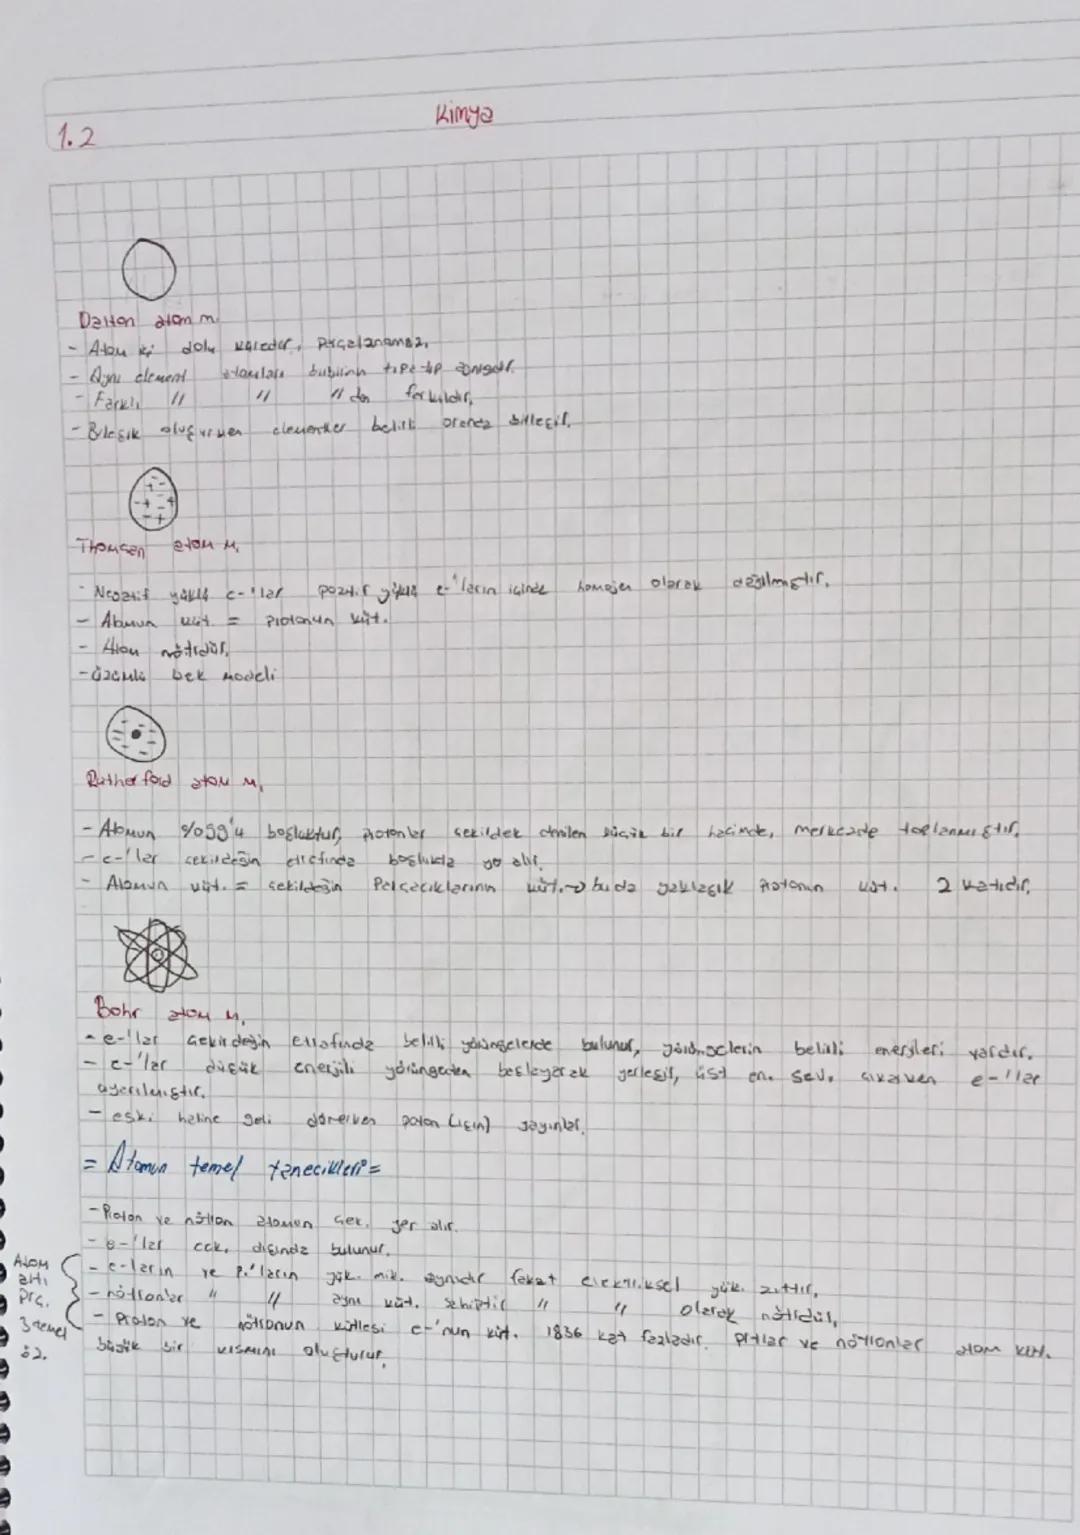 Kimya
1.2
Dalton atom m.
- Atom içi dolu küredir, parçalanamaz.
- Aynı element atomları birbirinin tıpa-tıp aynısıdır.
- Farklı " " " dan farklıdır.
- Bileşik oluşurken elementler belirli oranda birleşir.
Thomson atom m.
- Negatif yüklü e-'lar pozitif yüklü e-'ların içinde homojen olarak dağılmıştır.
- Atomun küt. = protonun küt.
- Atom nötrdür.
- üzümlü kek modeli
Rutherford atom m.
- Atomun %099'u boşluktur, protonlar çekirdek denilen küçük bir hacimde, merkezde toplanmıştır.
- e-'lar çekirdeğin etrafında boşlukta yer alır.
- Atomun küt. = çekirdeğin parçacıklarının küt. → bu da yaklaşık protonun küt. 2 katıdır.
Bohr atom m.
- e-'lar çekirdeğin etrafında belirli yörüngelerde bulunur, yörüngelerin belirli enerjileri vardır.
- e-'lar düşük enerjili yörüngeden başlayarak yerleşir, üst en. sev. çıkarken e-'lar
uyarılmıştır.
- eski haline geri dönerken foton (ışın) yayınlar.
= Atomun temel tanecikleri =
- Proton ve nötron atomun çek. yer alır.
- e-'lar çek. dışında bulunur.
- e-ların ve p.'ların yük. mik. aynıdır fakat elektriksel yük. zıttır.
- nötronlar " " aynı küt. sahiptir " " olarak nötrdür.
- Proton ve nötronun kütlesi e-'nun küt. 1836 kat fazladır. p+lar ve nötronlar atom küt.
büyük bir kısmını oluşturur.
Atom
altı
prç.
3 temel
öz.